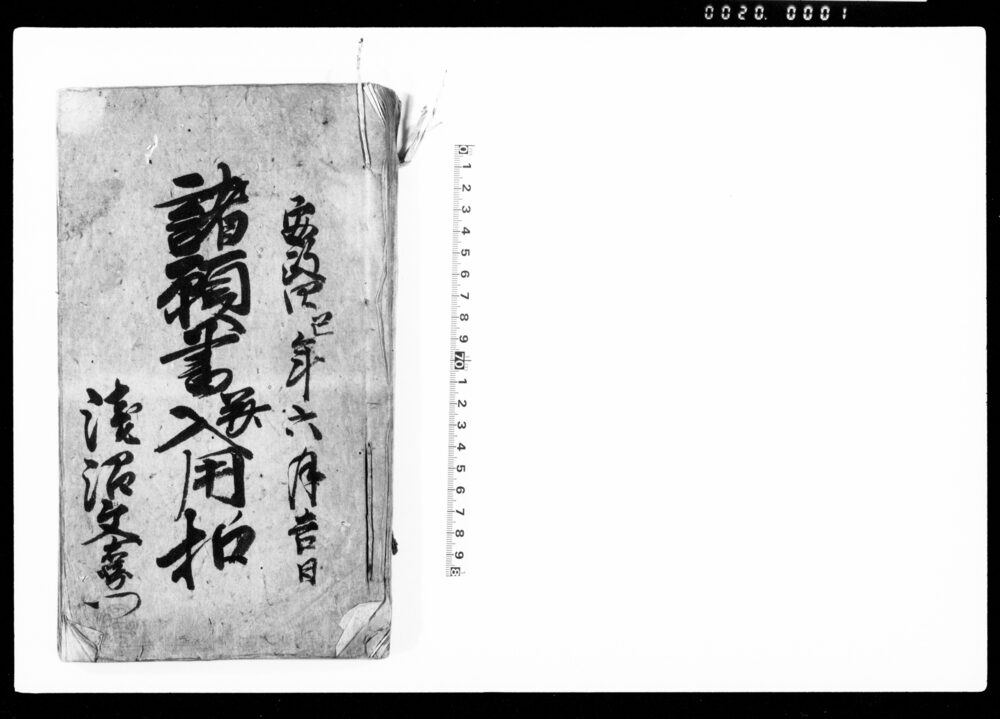 0020. 0001
安政四巳年六月吉日
諸願書并入用扣
淺沼文門
0 1 2 3 4 5 6 7 8 9 70 1 2 3 4 5 6 7 8 9 8